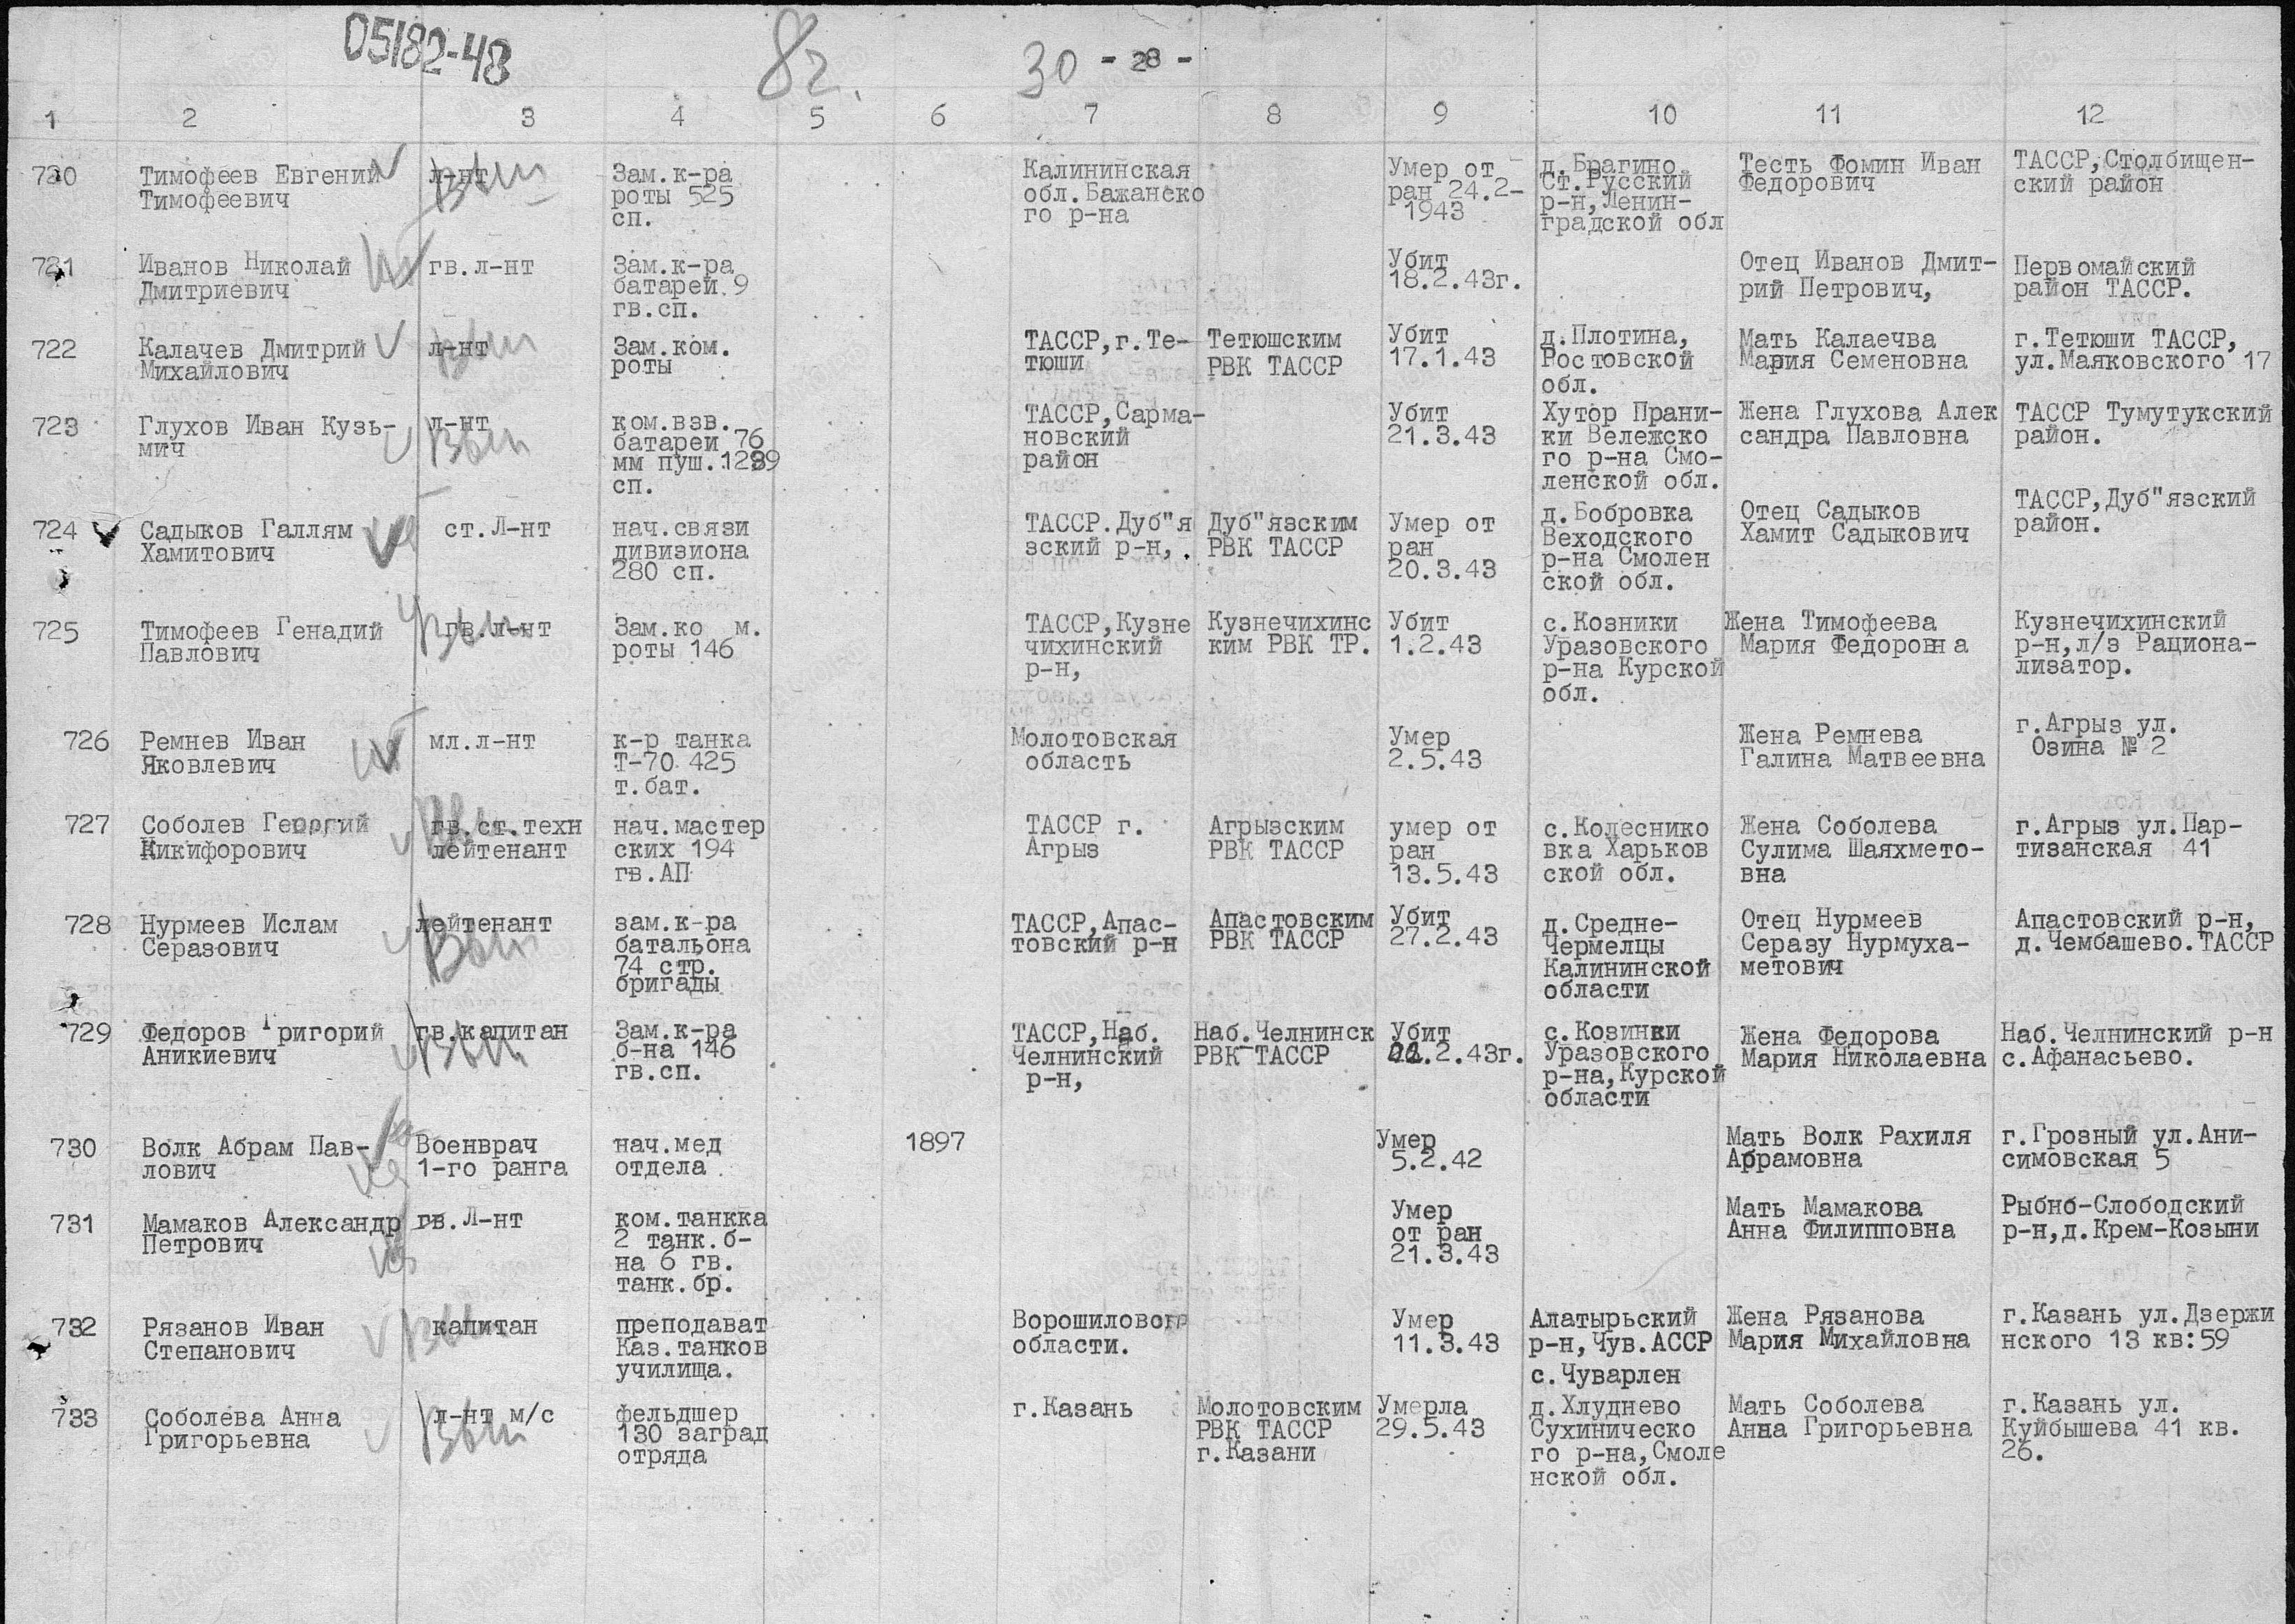 05182-48
82.
30 - 28 -
1 2 3 4 5 6 7 8 9 10 11 12
720 Тимофеев Евгений л-нт Зам.к-ра Калининская Умер от д.Брагино Тесть Фомин Иван ТАССР,Столбищен-
Тимофеевич роты 525 обл.Бажанско ран 24.2- Ст.Русский Федорович ский район
сп. го р-на 1943 р-н,Ленин-
градской обл
721 Иванов Николай гв.л-нт Зам.к-ра Убит Отец Иванов Дмит- Первомайский
Дмитриевич батареи 9 18.2.43г. рий Петрович, район ТАССР.
гв.сп.
722 Калачев Дмитрий л-нт Зам.ком. ТАССР,г.Те- Тетюшским Убит д.Плотина, Мать Калаечва г.Тетюши ТАССР,
Михайлович роты тюши РВК ТАССР 17.1.43 Ростовской Мария Семеновна ул.Маяковского 17
обл.
723 Глухов Иван Кузь- л-нт ком.взв. ТАССР,Сарма- Убит Хутор Прани- Жена Глухова Алек ТАССР Тумутукский
мич батареи 76 новский 21.3.43 ки Вележско сандра Павловна район.
мм пуш. район го р-на Смо-
сп. ленской обл.
724 Садыков Галлям ст.Л-нт нач.связи ТАССР.Дуб"я Дуб"язским Умер от д.Бобровка Отец Садыков ТАССР,Дуб"язский
Хамитович дивизиона зский р-н, РВК ТАССР ран Веходского Хамит Садыкович район.
280 сп. 20.3.43 р-на Смолен
ской обл.
725 Тимофеев Генадий гв.л-нт Зам.ко м. ТАССР,Кузне Кузнечихинс Убит с.Козники Жена Тимофеева Кузнечихинский
Павлович роты 146 чихинский ким РВК ТР. 1.2.43 Уразовского Мария Федоровна р-н,л/з Рациона-
р-н, р-на Курской лизатор.
обл.
726 Ремнев Иван мл.л-нт к-р танка Молотовская Умер Жена Ремнева г.Агрыз ул.
Яковлевич Т-70 425 область 2.5.43 Галина Матвеевна Озина № 2
т.бат.
727 Соболев Георгий гв.ст.техн нач.мастер ТАССР г. Агрызским умер от с.Колеснико Жена Соболева г.Агрыз ул.Пар-
Никифорович лейтенант ских 194 Агрыз РВК ТАССР ран вка Харьков Сулима Шаяхмето- тизанская 41
гв.АП 13.5.43 ской обл. вна
728 Нурмеев Ислам лейтенант зам.к-ра ТАССР,Апас- Апастовским Убит д.Средне- Отец Нурмеев Апастовский р-н,
Серазович батальона товский р-н РВК ТАССР 27.2.43 Чермелцы Серазу Нурмуха- д.Чембашево.ТАССР
74 стр. Калининской метович
бригады области
729 Федоров Григорий гв.капитан Зам.к-ра ТАССР,Наб. Наб.Челнинск Убит с.Козинки Жена Федорова Наб.Челнинский р-н
Аникиевич б-на 146 Челнинский РВК ТАССР .2.43г. Уразовского Мария Николаевна с.Афанасьево.
гв.сп. р-н, р-на,Курской
области
730 Волк Абрам Пав- Военврач нач.мед 1897 Умер Мать Волк Рахиля г.Грозный ул.Ани-
лович 1-го ранга отдела 5.2.42 Абрамовна симовская 5
731 Мамаков Александр гв.Л-нт ком.танкка Умер Мать Мамакова Рыбно-Слободский
Петрович 2 танк.б- от ран Анна Филипповна р-н,д.Крем-Козыни
на 6 гв. 21.3.43
танк.бр.
732 Рязанов Иван капитан преподават Ворошиловогр Умер Алатырьский Жена Рязанова г.Казань ул.Дзержи
Степанович Каз.танков области. 11.3.43 р-н,Чув.АССР Мария Михайловна нского 13 кв:59
училища. с.Чуварлен
733 Соболева Анна л-нт м/с фельдшер г.Казань Молотовским Умерла д.Хлуднево Мать Соболева г.Казань ул.
Григорьевна 130 заград РВК ТАССР 29.5.43 Сухиническо Анна Григорьевна Куйбышева 41 кв.
отряда г.Казани го р-на,Смоле 26.
нской обл.